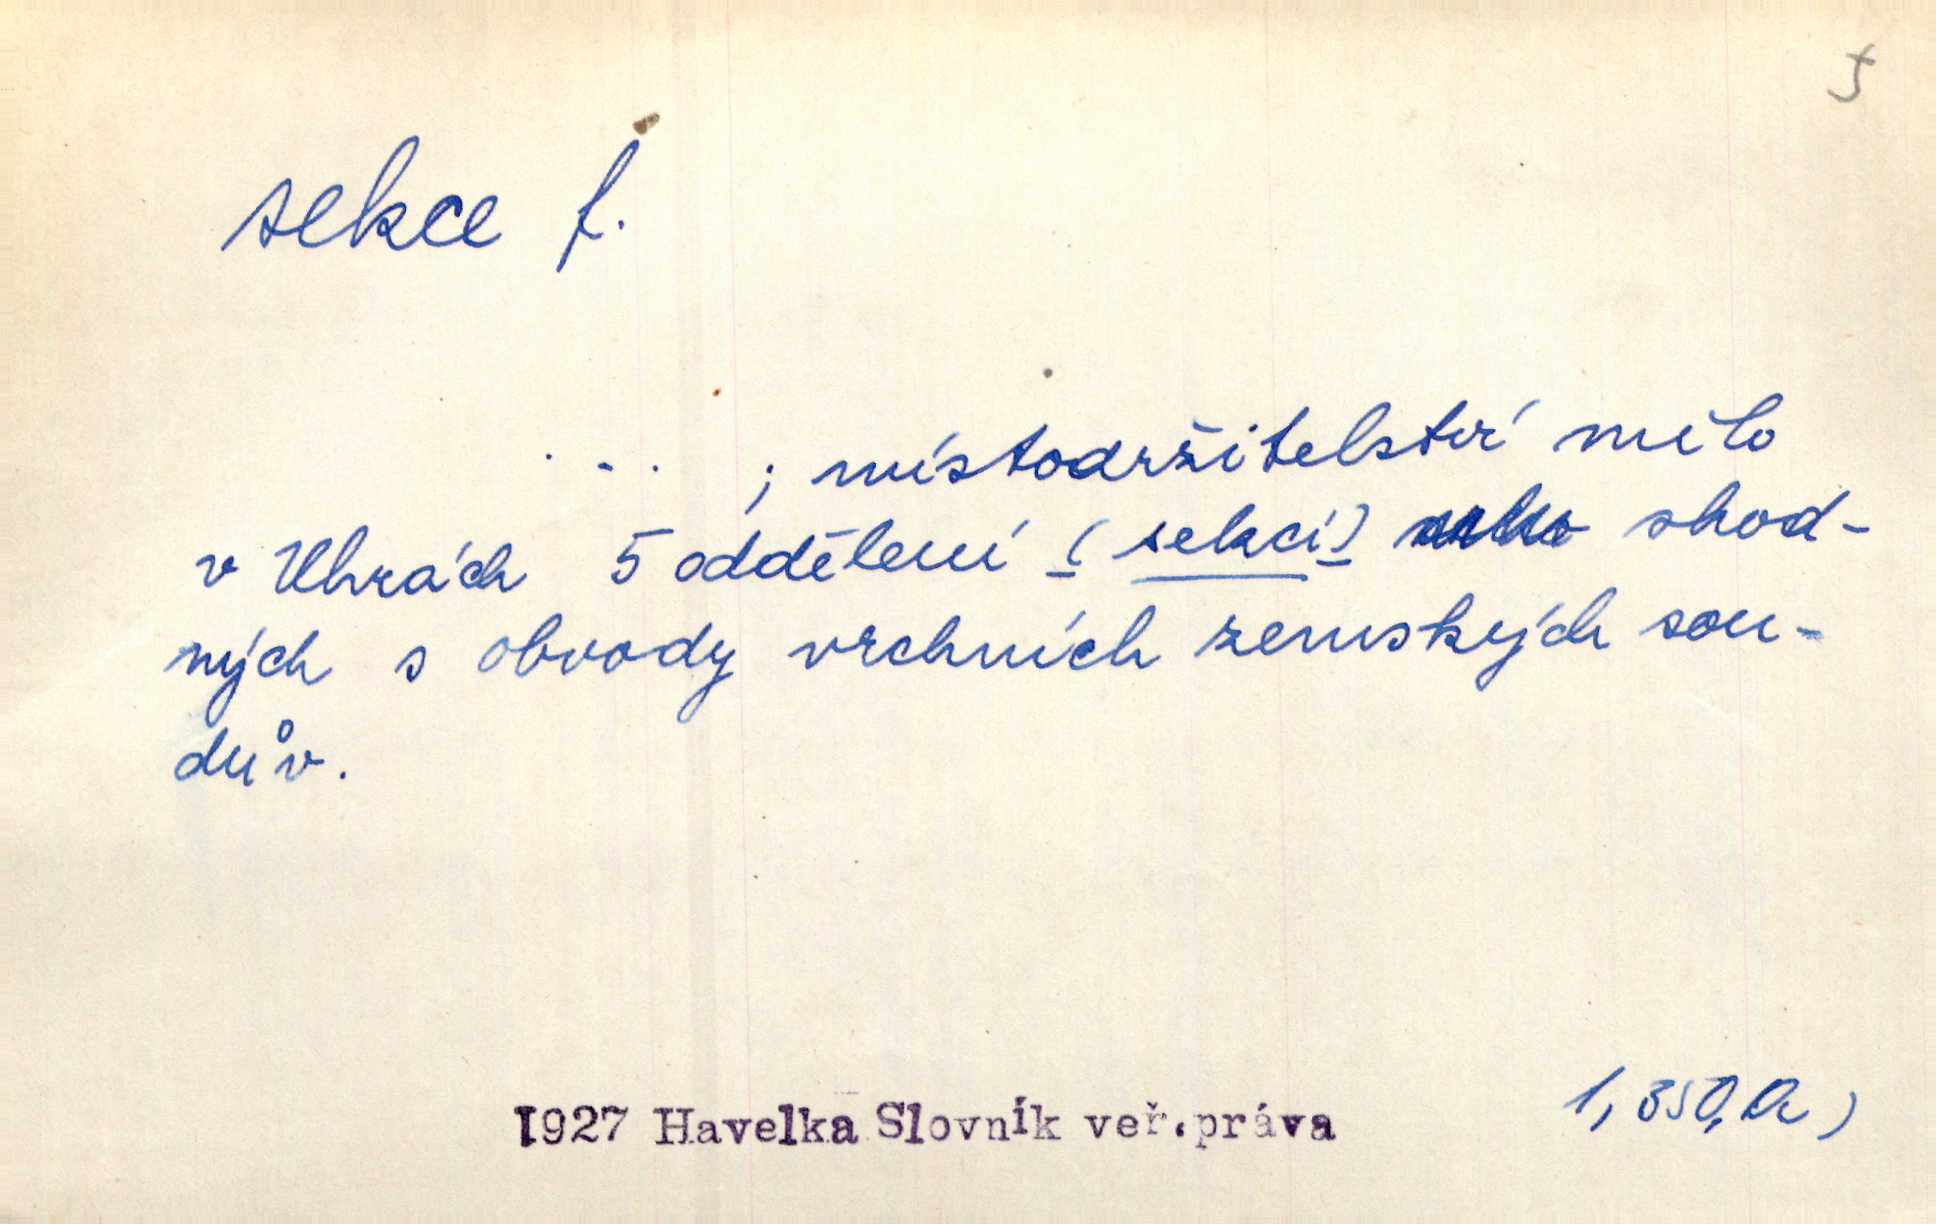 5
sekce f.
... ; místodržitelství mělo
v Uhrách 5 oddělení (sekcí) shod-
ných s obvody vrchních zemských sou-
dův.
1927 Havelka Slovník veř.práva
1, 350,